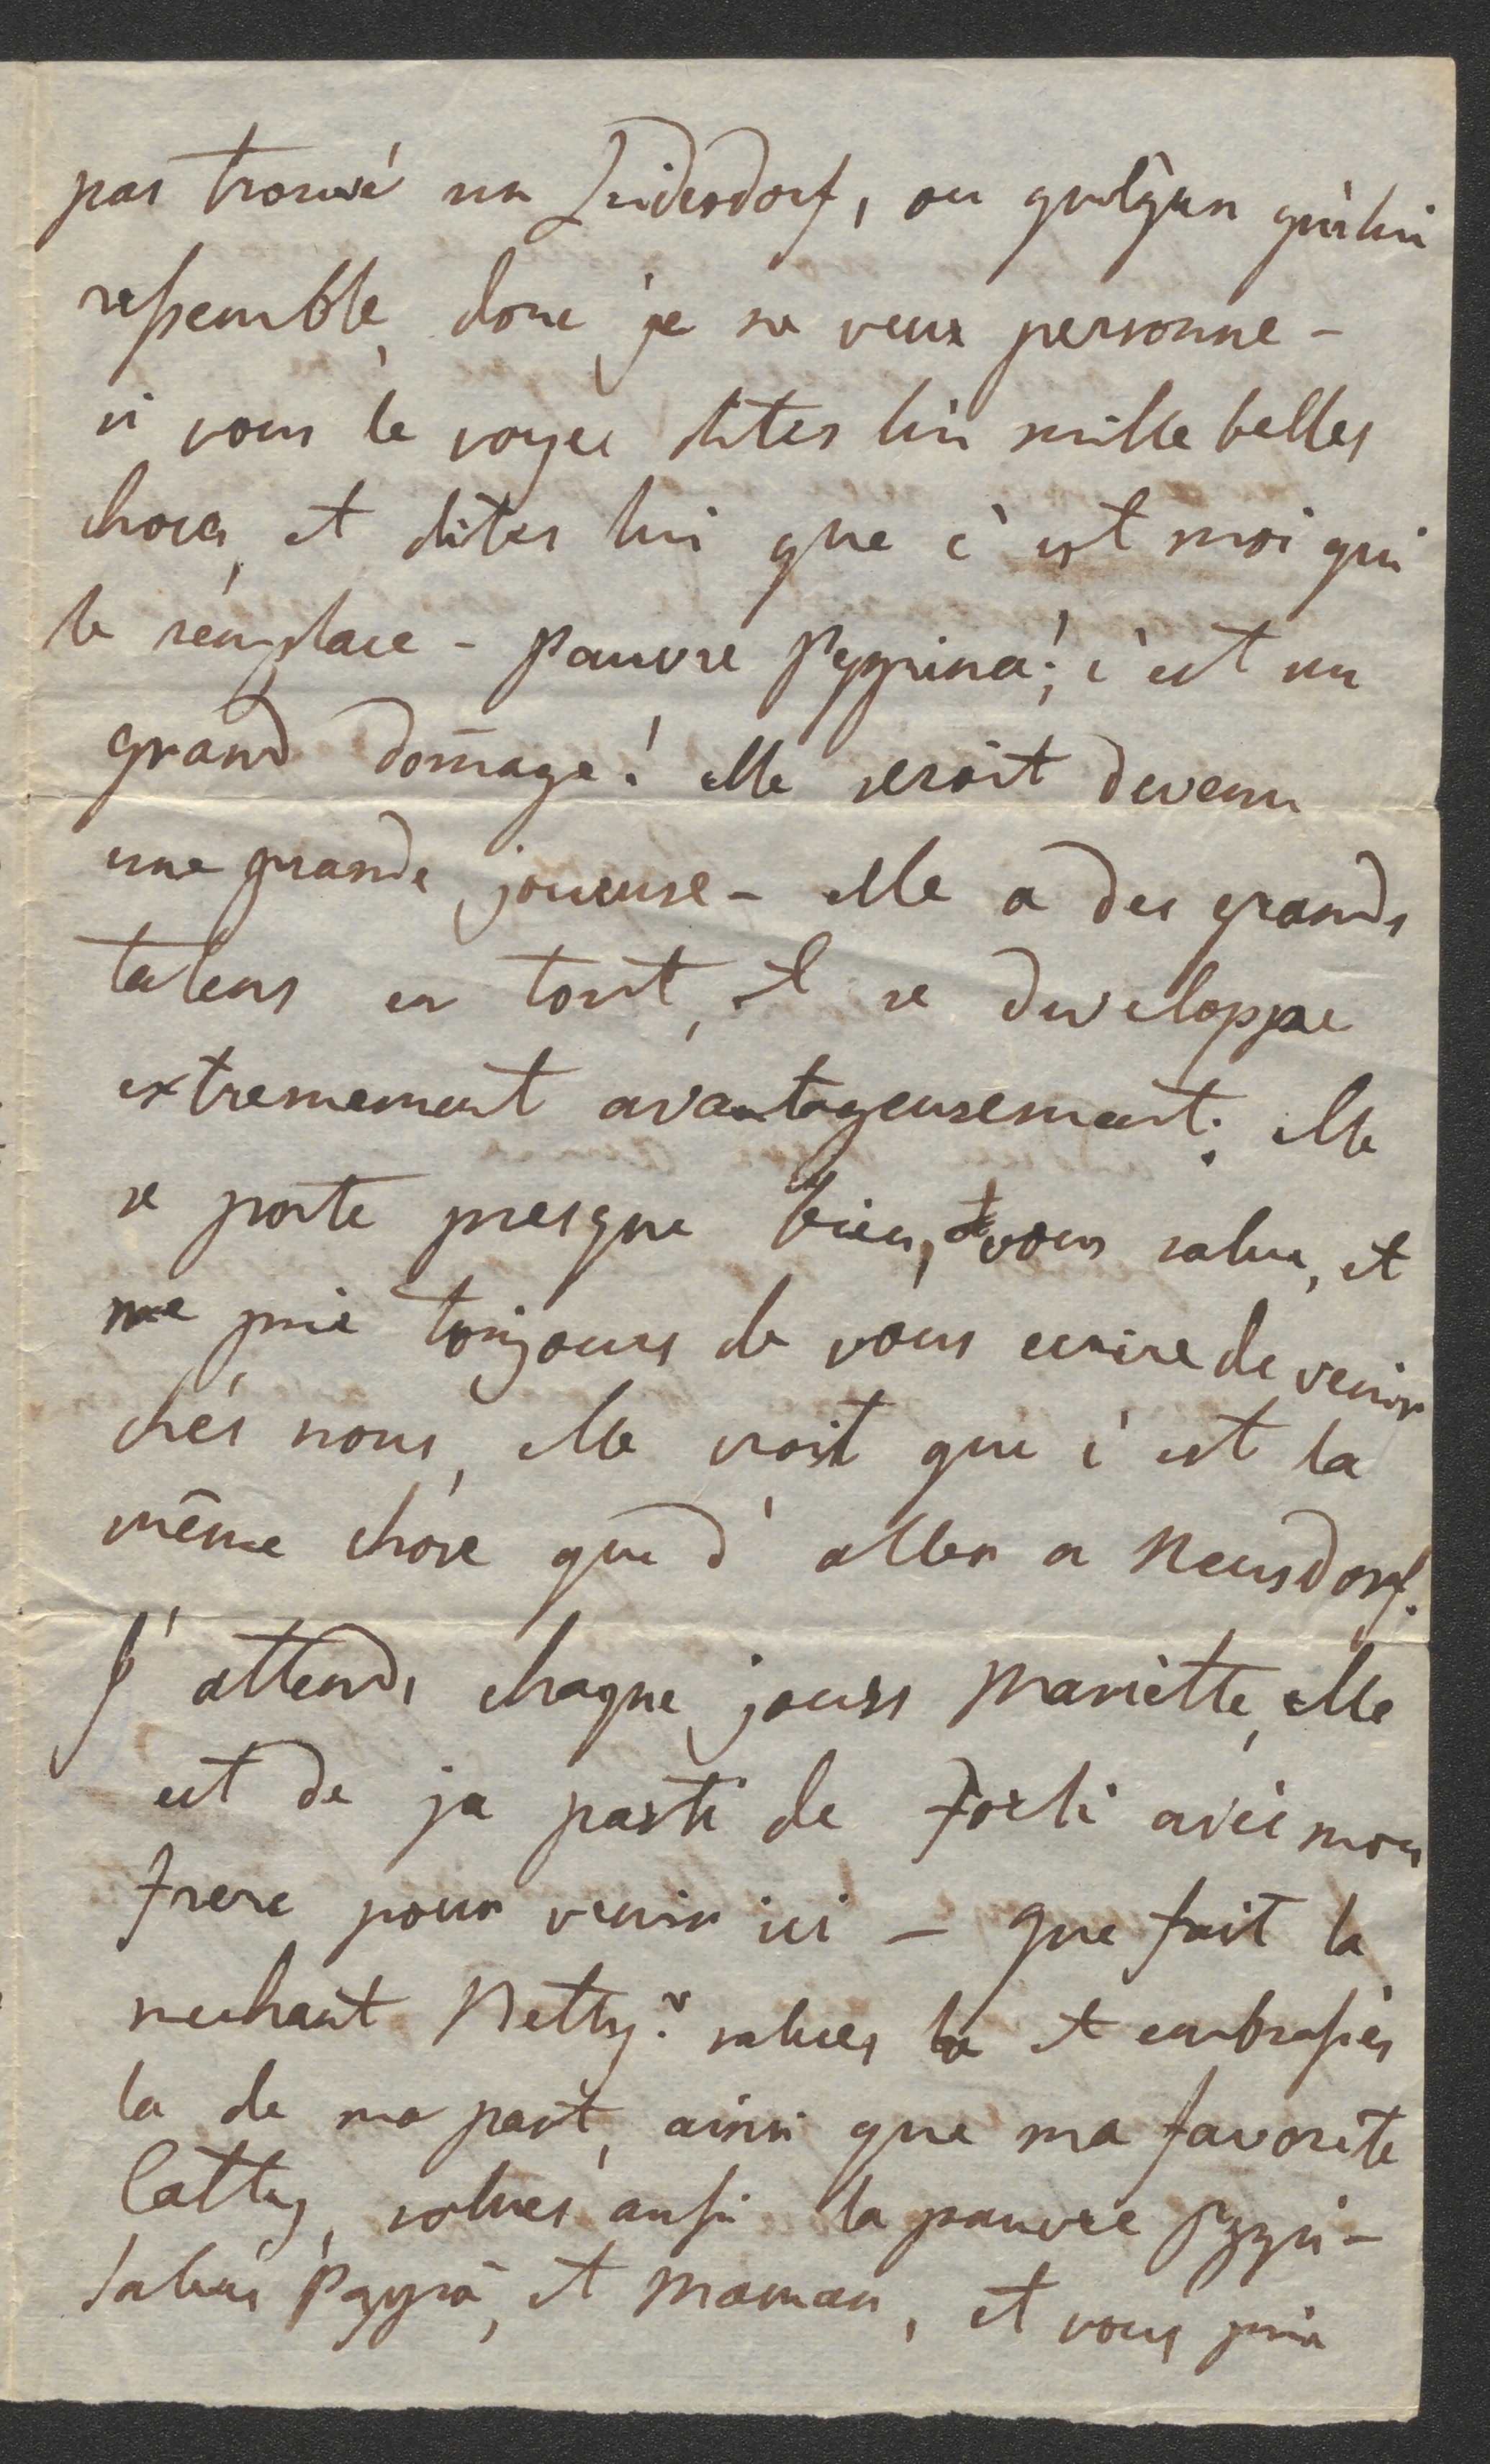 pas trouvé un Leidesdorf, ou quelqun qui lui
ressemble, donc je ne veux personne -
si vous le voyes dites lui mille belles
choses, et dites lui que c'est moi qui
le remplace - pauvre Peppina! c'est un
grand dom̄age! elle seroit devenu
une grande joueuse - elle a des grands
talens en tout, et se developpe
extremement avantageusement: elle
se porte presque bien, vous salue, et
me prie toujours de vous ecrire de venir
chés nous, elle croit que c'est la
même chose que d'aller a Neusdorf.
J'attends chaque jours Mariette, elle
est de ja parti de Forli avec mon
frere pour venir ici - que fait la
mechant Netty? salues la et embrassés
la de ma part, ainsi que ma favorite
Catty, salués aussi la pauvre Peppi -
Salués Pappa, et Maman, et vous prie